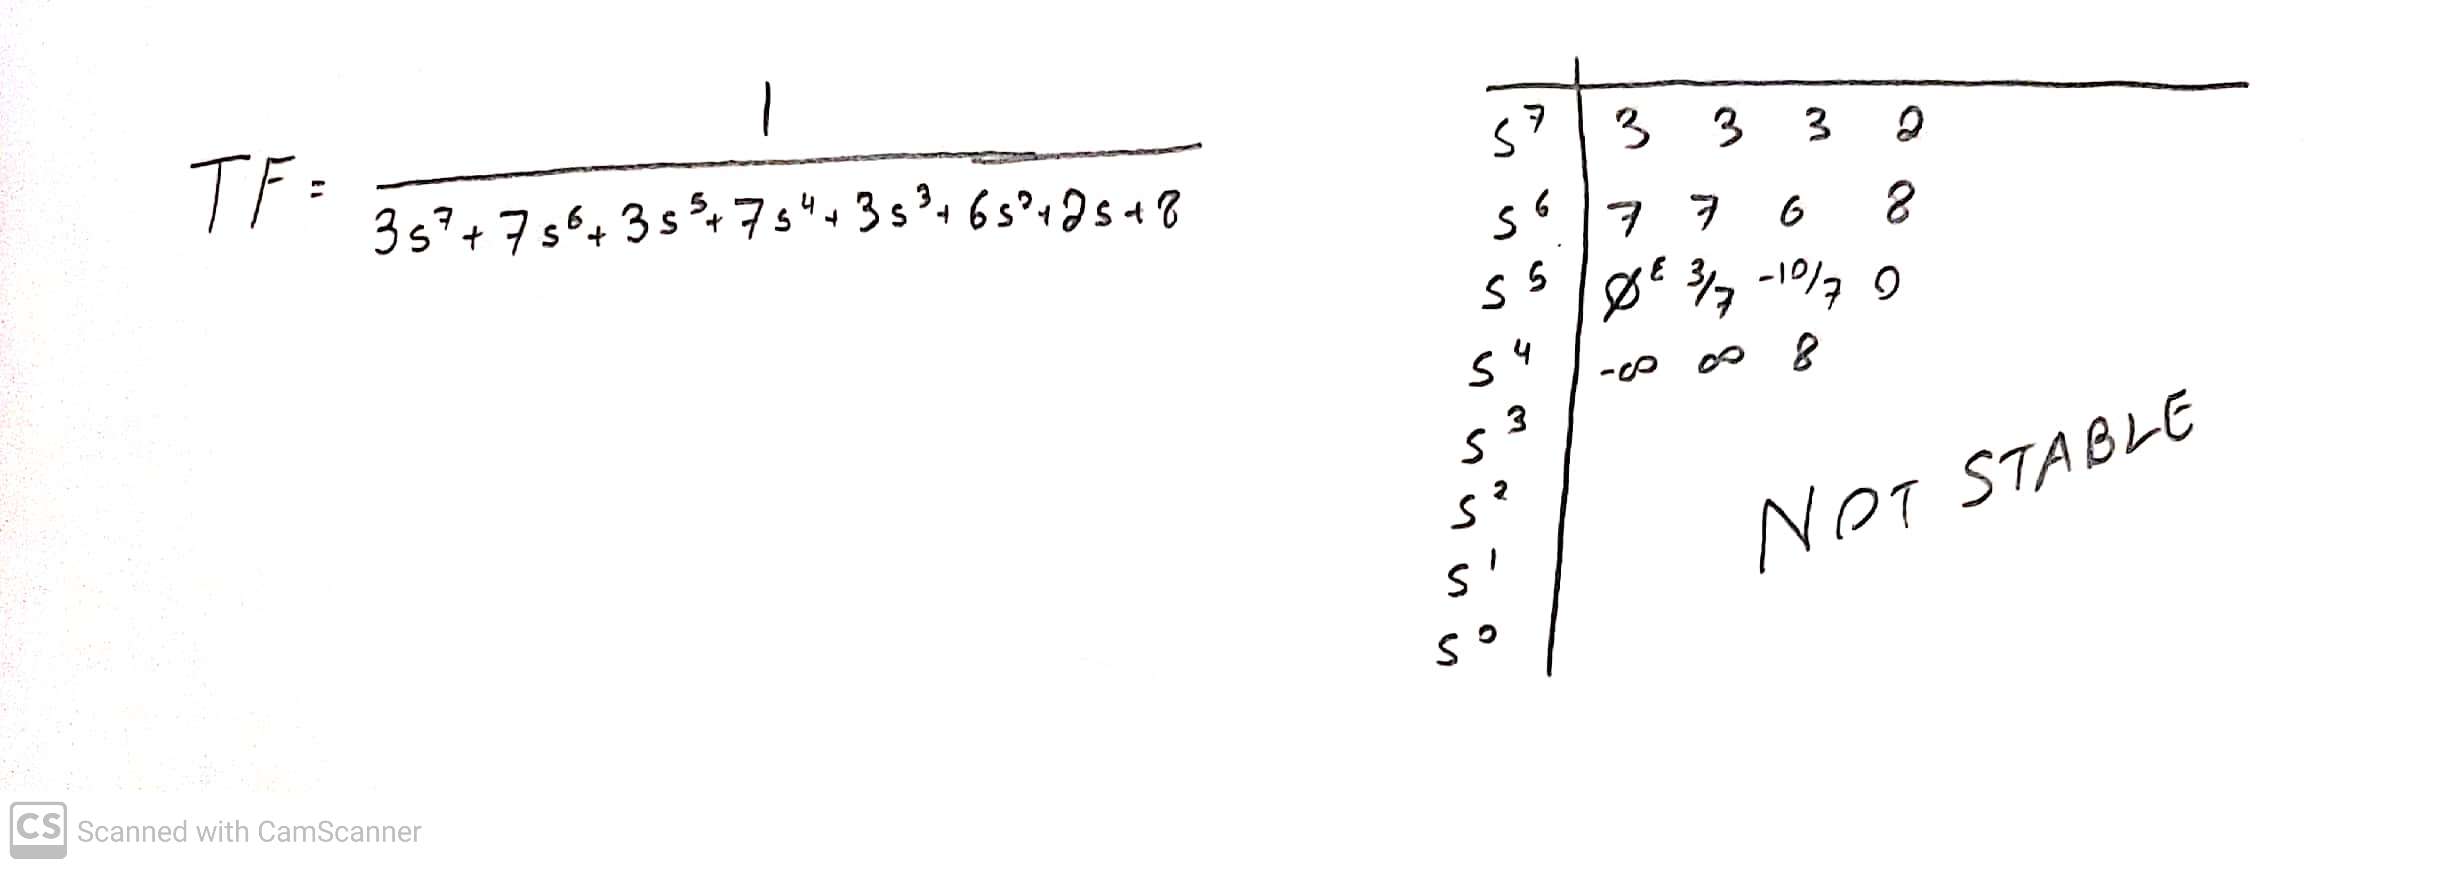 TF = 1 / (3s⁷ + 7s⁶ + 3s⁵ + 7s⁴ + 3s³ + 6s² + 2s + 8)
s⁷ | 3 3 3 2
s⁶ | 7 7 6 8
s⁵ | 0 ε 3/7 -10/7 0
s⁴ | -∞ ∞ 8
s³ |
s² |
s¹ |
s⁰ |
NOT STABLE
CS Scanned with CamScanner